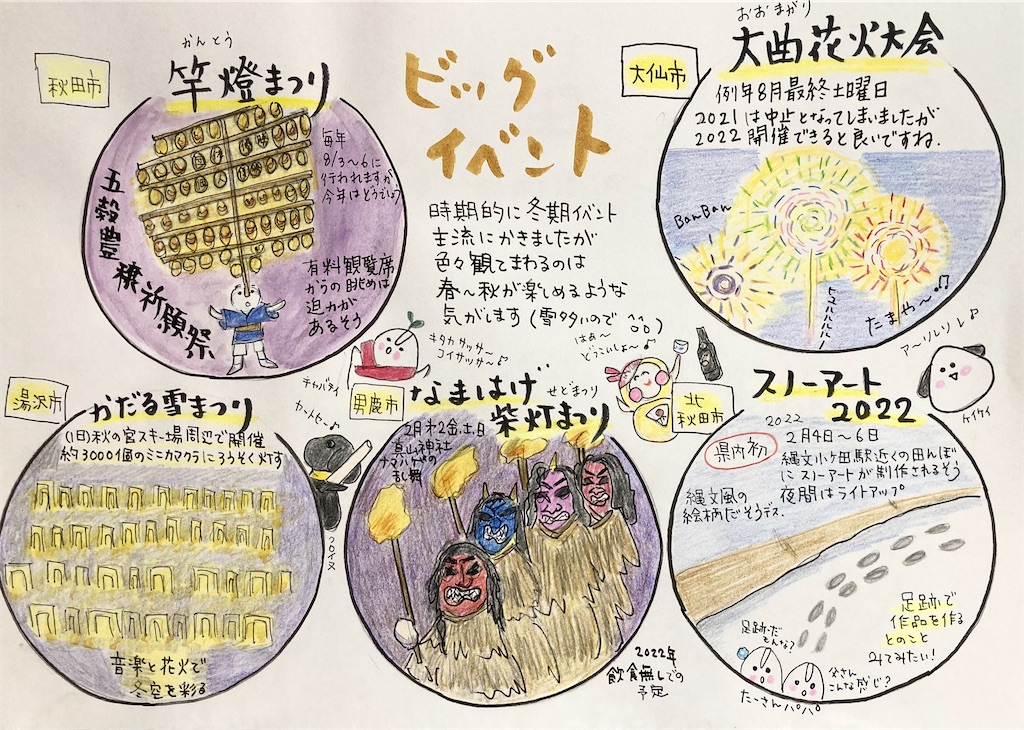 ビッグ
イベント
時期的に冬期イベント
主流にかきましたが
色々観てまわるのは
春〜秋が楽しめるような
気がします(雪多いので
秋田市
かんとう
竿燈まつり
毎年
8/3〜6に
行われますが
今年はどうでしょう
五穀豊穣祈願祭
有料観覧席
からの眺めは
迫力が
あるそう
キタカサッサ〜♪
コイサッサ〜♪
大仙市
おおまがり
大曲花火大会
例年8月最終土曜日
2021は中止となってしまいましたが
2022開催できると良いですね.
BanBan
たまや〜♪
湯沢市
かだる雪まつり
(旧)秋の宮スキー場周辺で開催
約3000個のミニカマクラにろうそく灯す
音楽と花火で
冬空を彩る
クロイヌ
男鹿市
なまはげ
せどまつり
柴灯まつり
2月第2金土日
真山神社
ナマハゲの
乱舞
2022年
飲食無しでの
予定
はぁ〜
どっこいしょ〜♪
北
秋田市
スノーアート
2022
県内初
2022
2月4日〜6日
縄文小ヶ田駅近くの田んぼ
にスノーアートが制作されるそう
夜間はライトアップ
縄文風の
絵柄だそうデス.
足跡で
作品を作る
とのこと
みてみたい!
足跡だ
もんな?
父さん
こんな感じ?
たーさんパパ
ア〜ソレソレ♪
ケイケイ